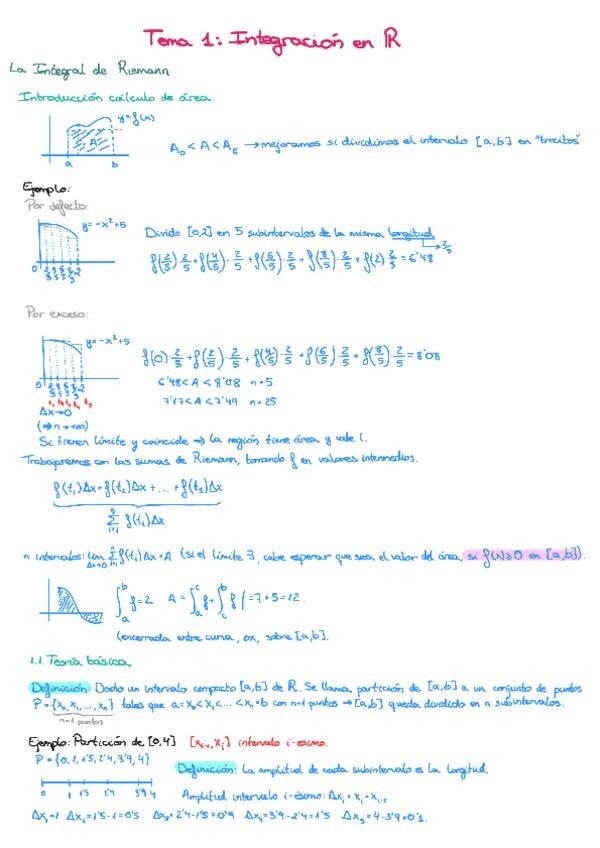 Tema 1: Integración en ℝ
La Integral de Riemann
Introducción cálculo de área.
y=f(x)
A
a b
A_D < A < A_E → mejoramos si dividimos el intervalo [a,b] en "trocitos"
Ejemplo:
Por defecto:
y=-x²+5
Divido [0,2] en 5 subintervalos de la misma longitud
→ 2/5
f(2/5)·2/5 + f(4/5)·2/5 + f(6/5)·2/5 + f(8/5)·2/5 + f(2)·2/5 = 6'48
0 2/5 4/5 6/5 8/5 2
Por exceso:
y=-x²+5
f(0)·2/5 + f(2/5)·2/5 + f(4/5)·2/5 + f(6/5)·2/5 + f(8/5)·2/5 = 8'08
0 2/5 4/5 6/5 8/5 2
6'48 < A < 8'08 n=5
7'17 < A < 7'49 n=25
Δx→0
(⇒ n→+∞)
Si tienen límite y coincide ⇒ la región tiene área y vale l.
Trabajaremos con las sumas de Riemann, tomando f en valores intermedios.
f(t₁)Δx + f(t₂)Δx + ... + f(t₅)Δx
∑_{i=1}^{5} f(t_i)Δx
n intervalos: lim_{Δx→0} ∑_{i=1}^{n} f(t_i)Δx = A (si el límite ∃, cabe esperar que sea el valor del área, si f(x)≥0 en [a,b]).
∫_a^b f=2 A = ∫_a^c f + |∫_c^b f| = 7+5 = 12.
(encerrada entre curva, ox, sobre [a,b].
1.1. Teoría básica.
Definición: Dado un intervalo compacto [a,b] de ℝ. Se llama partición de [a,b] a un conjunto de puntos
P = {x₀, x₁, ..., xₙ} tales que a=x₀<x₁<...<xₙ=b con n+1 puntos → [a,b] queda dividido en n subintervalos.
n+1 puntos
Ejemplo: Partición de [0,4] [x_{i-1}, x_i] intervalo i-ésimo.
P = {0, 1, 1'5, 2'4, 3'9, 4}
Definición: La amplitud de cada subintervalo es la longitud.
0 1 1'5 2'4 3'9 4
Amplitud intervalo i-ésimo: Δx_i = x_i - x_{i-1}
Δx₁=1 Δx₂=1'5-1=0'5 Δx₃=2'4-1'5=0'9 Δx₄=3'9-2'4=1'5 Δx₅=4-3'9=0'1.